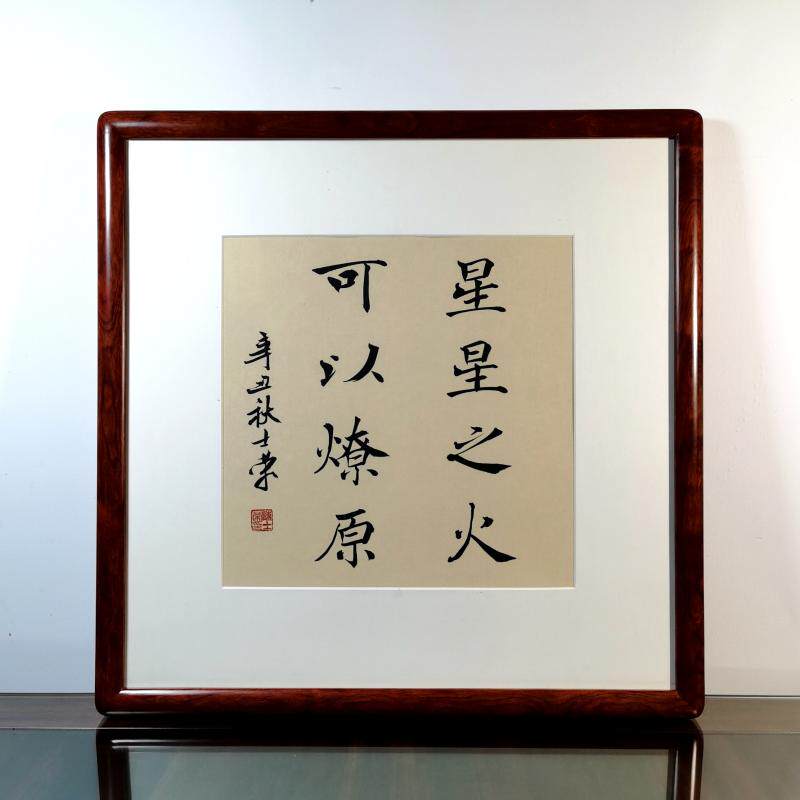 星星之火
可以燎原
辛丑秋士荣